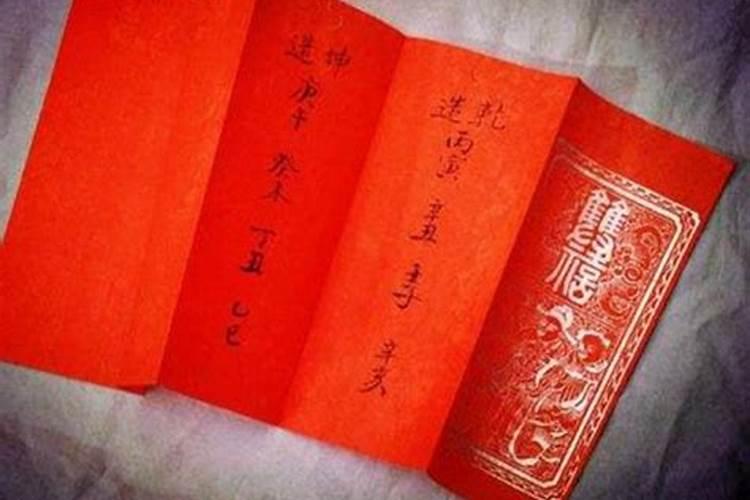 雙
乾造
丙寅 辛丑 壬子 辛亥
坤造
庚午 癸未 丁丑 乙巳